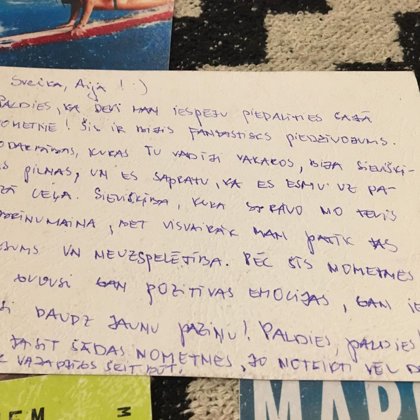 Sveika, Aija! :)
PALDIES, KA DEVI MAN IESPĒJU PIEDALĪTIES ŠAJĀ
NOMETNĒ! ŠIS IR BIJIS FANTASTISKS PIEDZĪVOJUMS.
NODARBĪBAS, KURAS TU VADĪJI VAKAROS, BIJA SIEVIŠĶĪ-
S PILNAS, UN ES SAPRATU, KA ES ESMU UZ PA-
ZĀ CEĻA. SIEVIŠĶĪBA, KURA STRĀVO NO TEVIS
BET VISVAIRĀK MAN PATĪK
UMS UN NEUZSPĒLĒTĪBA. PĒC ŠĪS NOMETNES
GUVUSI GAN POZITĪVAS EMOCIJAS, GAN IE
SI DAUDZ JAUNU PAZIŅU! PALDIES, PALDIES
TAISĪT ŠĀDAS NOMETNES, JO NOTEIKTI VĒL
ŠEIT BŪT.
MAR